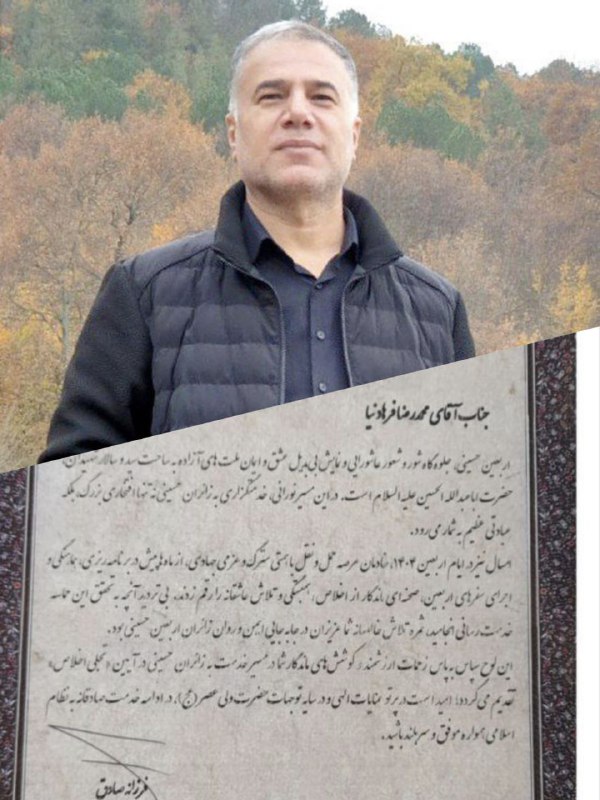 جناب آقای محمدرضا فرهادنیا
اربعین حسینی، جلوه‌گاه شور و شعور عاشورایی و نمایش بی‌بدیل عشق و ایمان ملت‌های آزاده به ساحت سید و سالار شهیدان،
حضرت اباعبدالله الحسین علیه السلام است. در این مسیر نورانی، خدمتگزاری به زائران حسینی نه تنها افتخاری بزرگ، بلکه
عبادتی عظیم به شمار می‌رود.
امسال نیز در ایام اربعین ۱۴۰۴، خادمان عرصه حمل و نقل با همتی سترگ و عزمی جهادی، از ماه‌ها پیش در برنامه‌ریزی، هماهنگی و
اجرای سفرهای اربعین، صحنه‌ای ماندگار از اخلاص، همبستگی و تلاش عاشقانه را رقم زدند. بی‌تردید آنچه به تحقق این حماسه
خدمت‌رسانی انجامید، ثمره تلاش خالصانه شما عزیزان در جابه‌جایی ایمن و روان زائران اربعین حسینی بود.
این لوح سپاس به پاس زحمات ارزشمند و کوشش‌های ماندگار شما در مسیر خدمت به زائران حسینی در آیین «تجلی اخلاص»
تقدیم می‌گردد؛ امید است در پرتو عنایات الهی و در سایه توجهات حضرت ولی عصر (عج)، در ادامه خدمت صادقانه به نظام
اسلامی همواره موفق و سربلند باشید.
فرزانه صادق